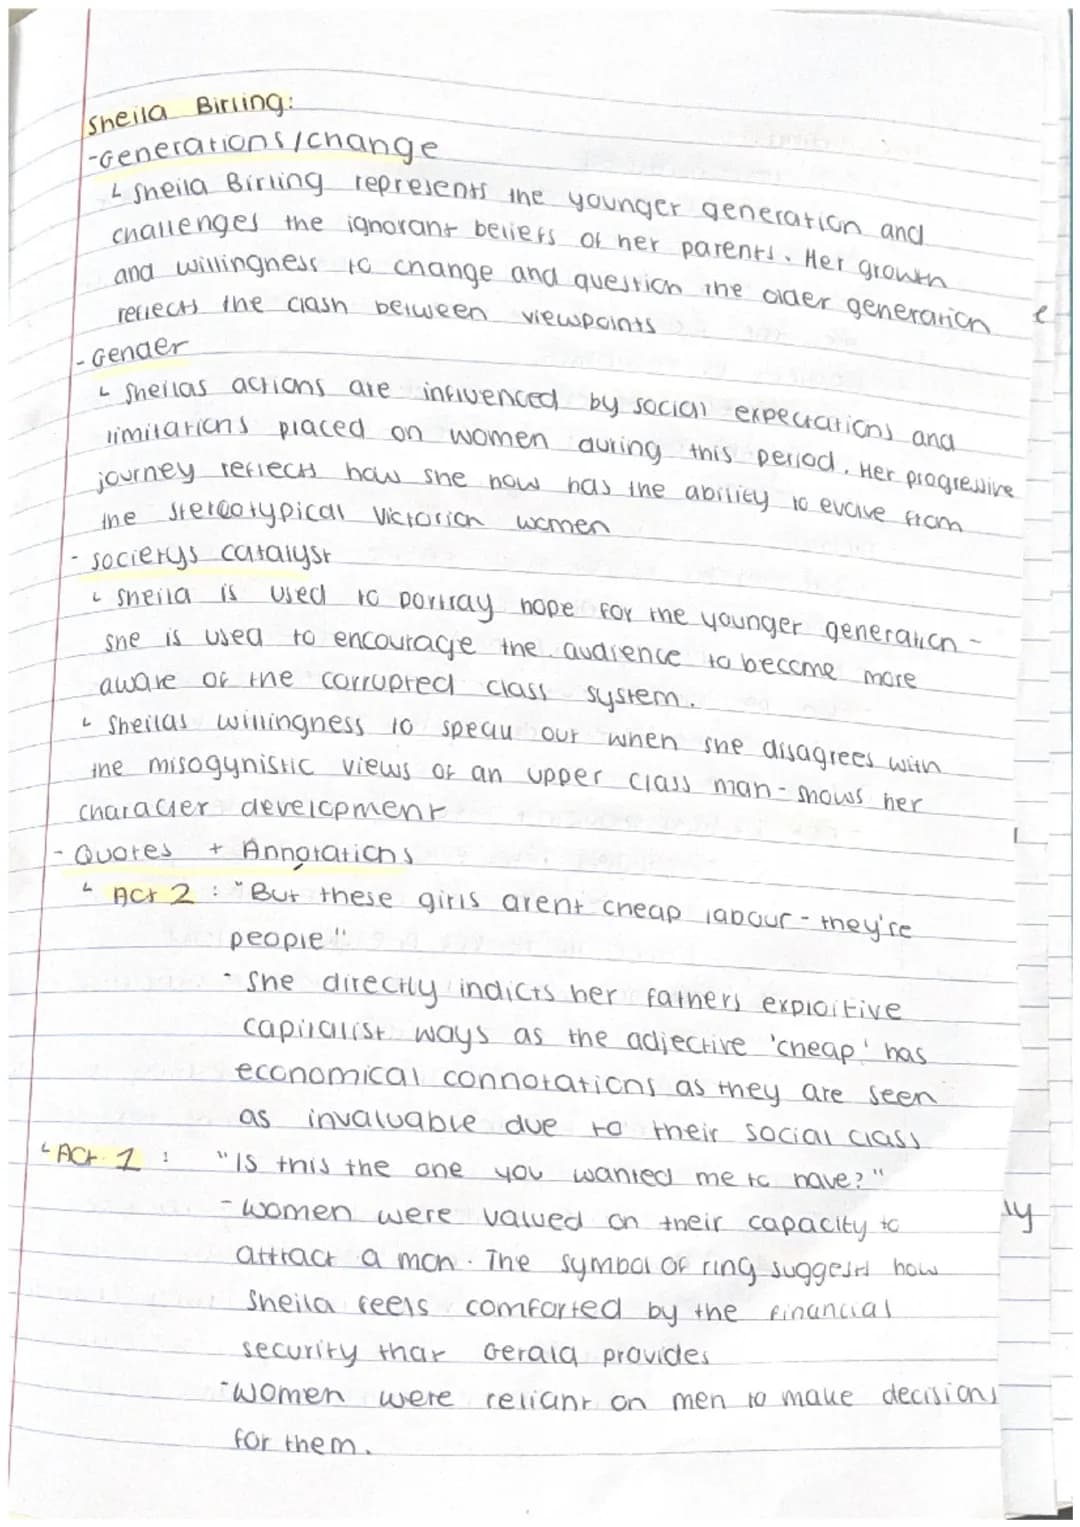 Sheila Birling:
-Generations/change
↳ Sheila Birling represents the younger generation and
challenges the ignorant beliefs of her parents. Her growth
and willingness to change and question the older generation
reflects the clash between viewpoints
- Gender
↳ Sheilas actions are influenced by social expectations and
limitations placed on women during this period. Her progressive
journey reflects how she now has the ability to evolve from
the stereotypical Victorian women
- societys catalyst
↳ Sheila is used to portray hope for the younger generation -
she is used to encourage the audience to become more
aware of the corrupted class system.
↳ Sheilas willingness to speak out when she disagrees with
the misogynistic views of an upper class man - shows her
character development
- Quotes + Annotations
↳ Act 2 : "But these girls arent cheap labour - they're
people"
- She directly indicts her fathers exploitive
capitalist ways as the adjective 'cheap' has
economical connotations as they are seen
as invaluable due to their social class
↳ Act 1 : "Is this the one you wanted me to have?"
- women were valued on their capacity to
attract a man. The symbol of ring suggests how
Sheila feels comforted by the financial
security that Gerald provides
- women were reliant on men to make decisions
for them.
e
ly